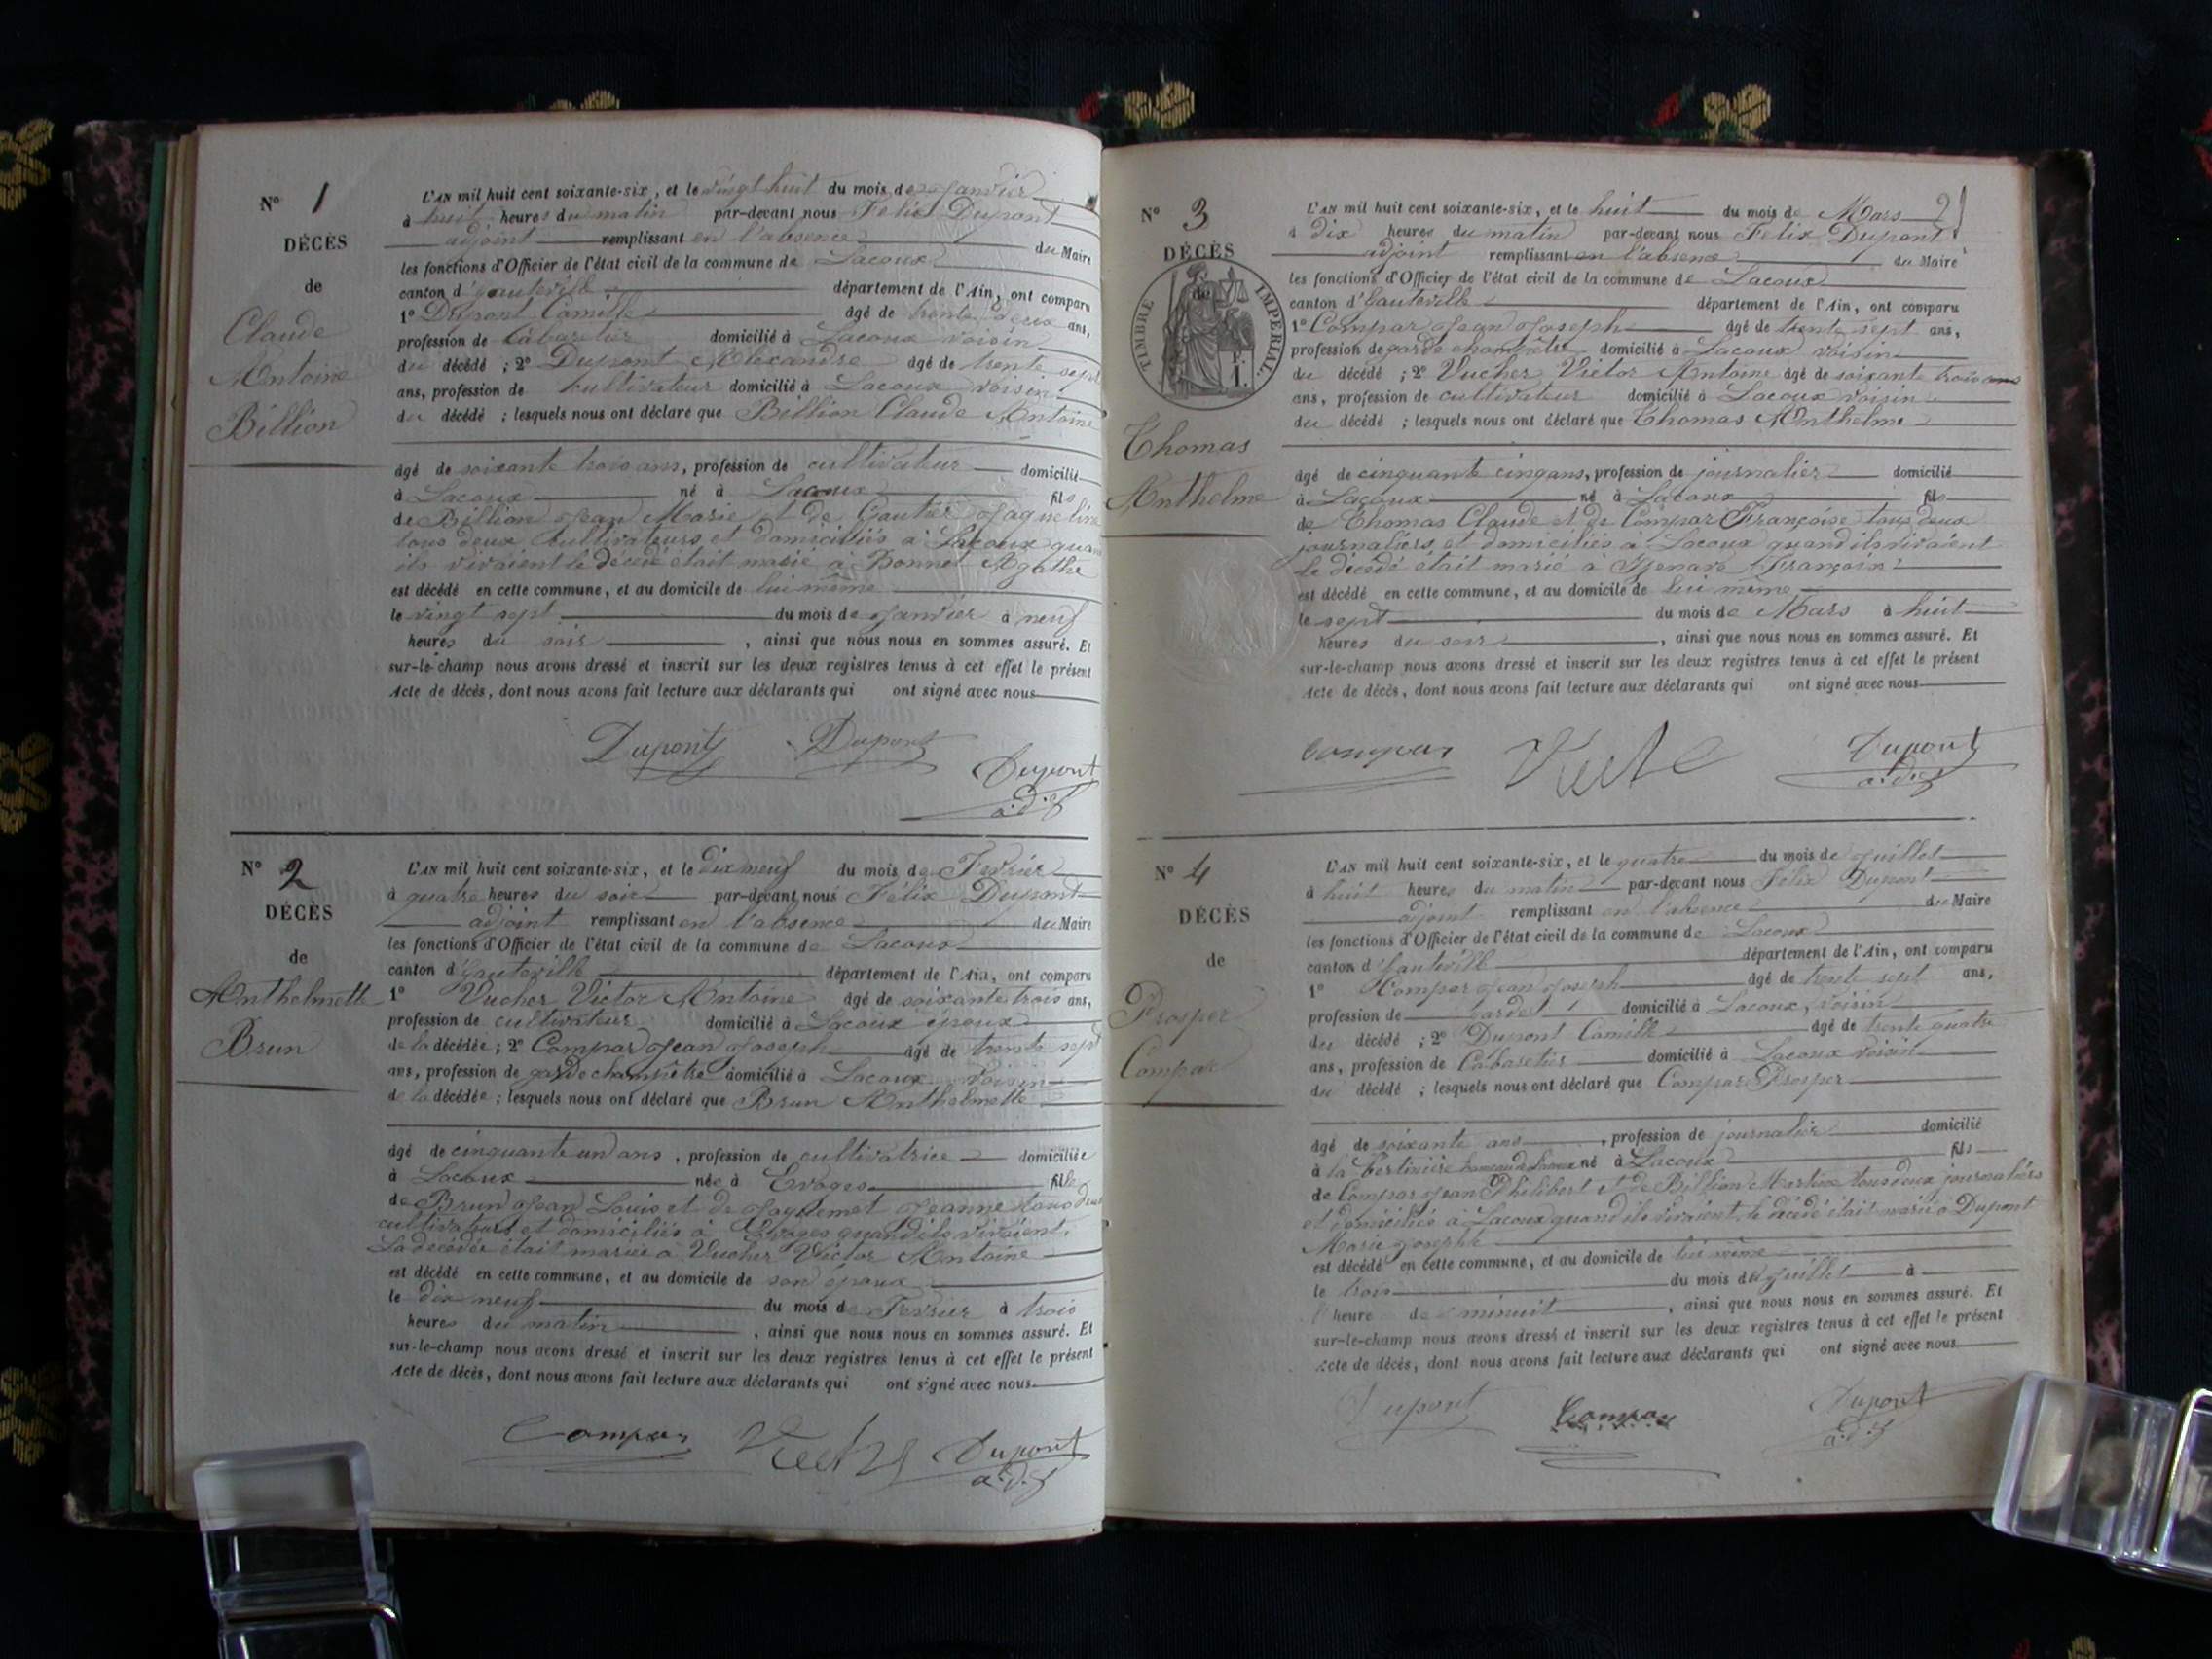 N° 1
DÉCÈS
de
Claude
Antoine
Billion
L'AN mil huit cent soixante-six, et le vingt huit du mois de Janvier
à huit heures du matin par-devant nous Félix Dupont
adjoint remplissant en l'absence du Maire
les fonctions d'Officier de l'état civil de la commune de Lacoux
canton d'hauteville département de l'Ain, ont comparu
1° Dupont Camille âgé de trente deux ans,
profession de Cabaretier domicilié à Lacoux voisin
du décédé ; 2° Dupont Alexandre âgé de trente sept
ans, profession de cultivateur domicilié à Lacoux voisin
du décédé ; lesquels nous ont déclaré que Billion Claude Antoine
âgé de soixante trois ans, profession de cultivateur domicilié
à Lacoux né à Lacoux fils
de Billion Jean Marie et de Gautier Jaqueline
tous deux Cultivateurs et domiciliés à Lacoux quan
ils vivaient le décédé était marié à Bonnet Agathe
est décédé en cette commune, et au domicile de lui même
le vingt sept du mois de Janvier à neuf
heures du soir , ainsi que nous nous en sommes assuré. Et
sur-le-champ nous avons dressé et inscrit sur les deux registres tenus à cet effet le présent
Acte de décès, dont nous avons fait lecture aux déclarants qui ont signé avec nous
Dupont Dupont
Dupont
a.d.j
N° 2
DÉCÈS
de
Anthelmette
Brun
L'AN mil huit cent soixante-six, et le dix neuf du mois de Fevrier
à quatre heures du soir par-devant nous Félix Dupont
adjoint remplissant en l'absence du Maire
les fonctions d'Officier de l'état civil de la commune de Lacoux
canton d'hauteville département de l'Ain, ont comparu
1° Vucher Victor Antoine âgé de soixante trois ans,
profession de cultivateur domicilié à Lacoux époux
de la décédée ; 2° Compar Jean Joseph âgé de trente sept
ans, profession de garde champêtre domicilié à Lacoux voisin
de la décédée ; lesquels nous ont déclaré que Brun Anthelmette
âgé de cinquante un ans, profession de cultivatrice domiciliée
à Lacoux née à Evoges fille
de Brun Jean Louis et de Jaquemet Jeanne tous deux
cultivateurs et domiciliés à Evoges quand ils vivaient.
La décédée était mariée à Vucher Victor Antoine
est décédé en cette commune, et au domicile de son époux
le dix neuf du mois de Fevrier à trois
heures du matin , ainsi que nous nous en sommes assuré. Et
sur-le-champ nous avons dressé et inscrit sur les deux registres tenus à cet effet le présent
Acte de décès, dont nous avons fait lecture aux déclarants qui ont signé avec nous
Compar Dupont
a.d.j
N° 3
DÉCÈS
de
TIMBRE IMPERIAL
Thomas
Anthelme
L'AN mil huit cent soixante-six, et le huit du mois de Mars
à dix heures du matin par-devant nous Félix Dupont
adjoint remplissant en l'absence du Maire
les fonctions d'Officier de l'état civil de la commune de Lacoux
canton d'hauteville département de l'Ain, ont comparu
1° Compar Jean Joseph âgé de trente sept ans,
profession de garde champêtre domicilié à Lacoux voisin
du décédé ; 2° Vucher Victor Antoine âgé de soixante trois ans
ans, profession de cultivateur domicilié à Lacoux voisin
du décédé ; lesquels nous ont déclaré que Thomas Anthelme
âgé de cinquante cinq ans, profession de journalier domicilié
à Lacoux né à Lacoux fils
de Thomas Claude et de Compar Françoise tous deux
journaliers et domiciliés à Lacoux quand ils vivaient
le décédé était marié à Françoise
est décédé en cette commune, et au domicile de lui même
le sept du mois de Mars à huit
heures du soir , ainsi que nous nous en sommes assuré. Et
sur-le-champ nous avons dressé et inscrit sur les deux registres tenus à cet effet le présent
Acte de décès, dont nous avons fait lecture aux déclarants qui ont signé avec nous
Compar Dupont
a.d.j
N° 4
DÉCÈS
de
Prosper
Compar
L'AN mil huit cent soixante-six, et le quatre du mois de Juillet
à huit heures du matin par-devant nous Félix Dupont
adjoint remplissant en l'absence du Maire
les fonctions d'Officier de l'état civil de la commune de Lacoux
canton d'hauteville département de l'Ain, ont comparu
1° Compar Jean Joseph âgé de trente sept ans,
profession de domicilié à Lacoux, voisin
du décédé ; 2° Dupont Camille âgé de trente quatre
ans, profession de Cabaretier domicilié à Lacoux voisin
du décédé ; lesquels nous ont déclaré que Compar Prosper
âgé de soixante ans , profession de journalier domicilié
à la hameau de Lacoux né à Lacoux fils
de Compar Jean Philibert et de Billion Martine tous deux journaliers
et domiciliés à Lacoux quand ils vivaient, le décédé était marié à Dupont
Marie Josephte
est décédé en cette commune, et au domicile de lui même
le trois du mois de Juillet à
heure de minuit , ainsi que nous nous en sommes assuré. Et
sur-le-champ nous avons dressé et inscrit sur les deux registres tenus à cet effet le présent
Acte de décès, dont nous avons fait lecture aux déclarants qui ont signé avec nous
Dupont Compar Dupont
a.d.j